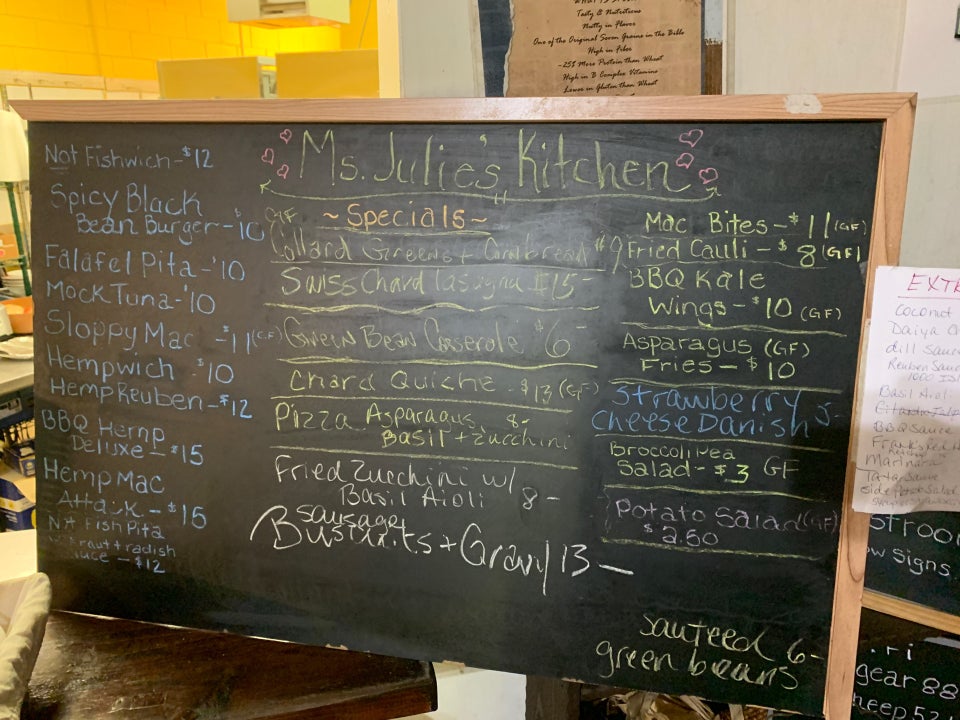 Tasty & Nutritious
Nutty in Flavor
One of the Original Seven Grains in the Bible
High in Fiber
~25% More Protein than Wheat
High in B Complex Vitamins
Lower in Gluten than Wheat
Ms. Julie's Kitchen
Not Fishwich - $12
Spicy Black
Bean Burger - $10
Falafel Pita - $10
Mock Tuna - $10
Sloppy Mac - $11 (GF)
Hempwich $10
Hemp Reuben - $12
BBQ Hemp
Deluxe - $15
Hemp Mac
Attack - $15
Not Fish Pita
Kraut + radish
$12
~ Specials ~
GF
Collard Greens + Cornbread $9
Swiss Chard Lasagna $15 -
Green Bean Casserole $6 -
Chard Quiche $13 (GF)
Pizza Asparagus, 8-
Basil + Zucchini
Fried Zucchini w/
Basil Aioli 8 -
sausage
+ Gravy 13 -
Mac Bites - $11 (GF)
Fried Cauli - $8 (GF)
BBQ Kale
Wings - $10 (GF)
Asparagus (GF)
Fries - $10
Strawberry 5-
Cheese Danish
Broccoli Pea
Salad - $3 GF
Potato Salad (GF)
$2.50
sauteed 6-
green beans
EXT
Coconut
Daiya
dill sauce
Reuben Sau
Basil Aioli
BBQ Sauce
Frank's Red H
Marinara
Tartar Sauce
side Potato Salad
ow Signs
gear 88